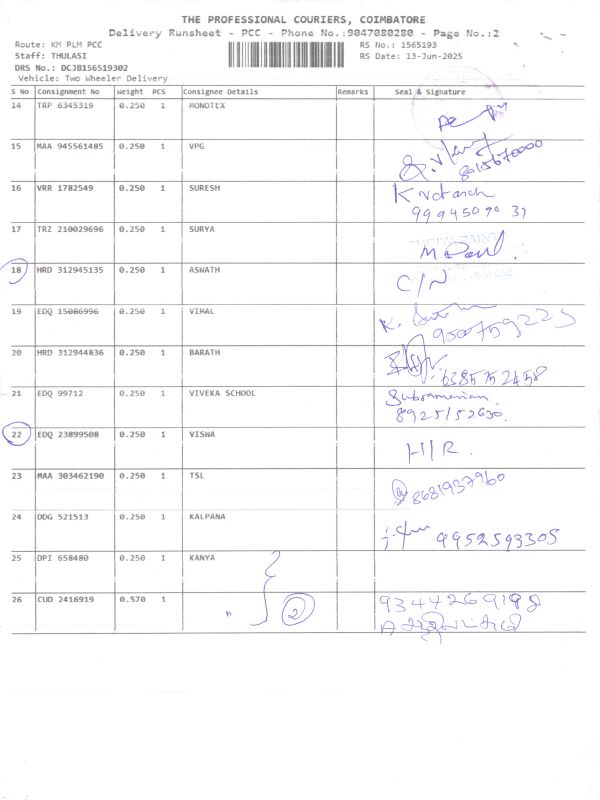 THE PROFESSIONAL COURIERS, COIMBATORE
Delivery Runsheet - PCC - Phone No.:9047080280 - Page No.:2
Route: KM PLM PCC RS No.: 1565193
Staff: THULASI RS Date: 13-Jun-2025
DRS No.: DCJB156519302
Vehicle: Two Wheeler Delivery
S No Consignment No Weight PCS Consignee Details Remarks Seal & Signature
14 TRP 6345319 0.250 1 MONOTEX
15 MAA 945561485 0.250 1 VPG
16 VRR 1782549 0.250 1 SURESH
9994509031
17 TRZ 210029696 0.250 1 SURYA
18 HRD 312945135 0.250 1 ASWATH C/N
19 EDQ 15086996 0.250 1 VIMAL K.
9500759225
20 HRD 312944836 0.250 1 BARATH
6385752458
21 EDQ 99712 0.250 1 VIVEKA SCHOOL Subramanian
8925152630.
22 EDQ 23899508 0.250 1 VISWA H/R.
23 MAA 303462190 0.250 1 TSL 8681937960
24 DDG 521513 0.250 1 KALPANA 9952593305
25 DPI 658480 0.250 1 KANYA
26 CUD 2416919 0.570 1 " 2 9344269198